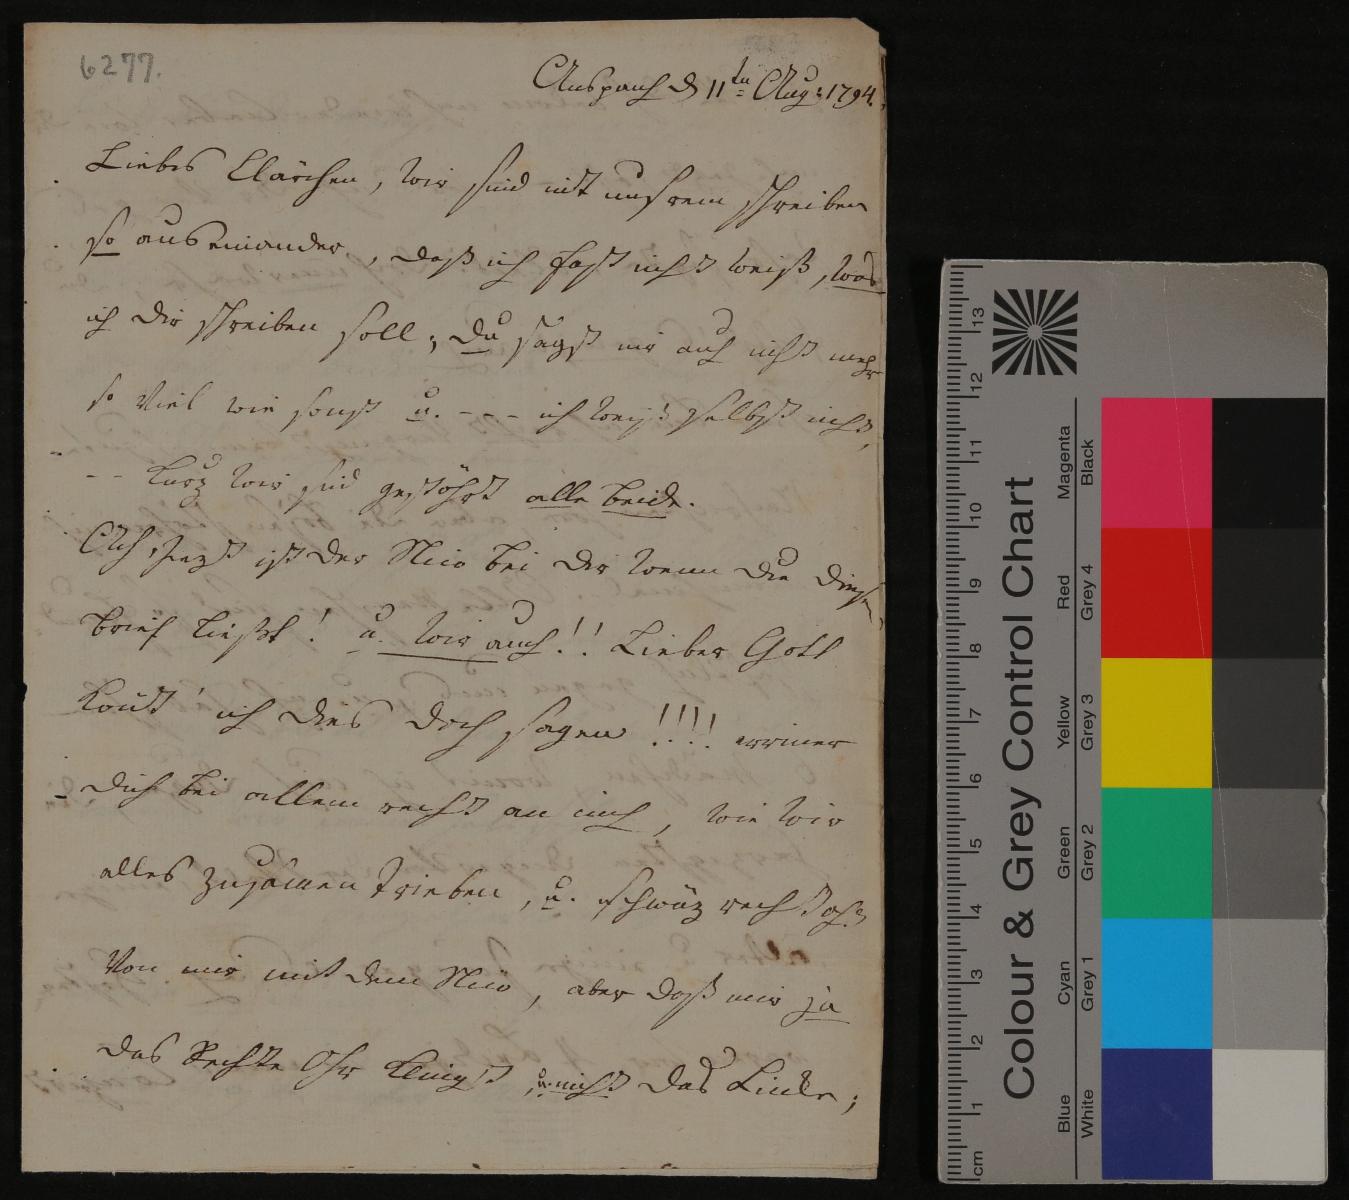 6277.
Anspach d 11ten Aug: 1794.
Liebes Clärchen, wir sind mit unsrem schreiben
so auseinander, daß ich fast nicht weiß, was
ich dir schreiben soll; Du sagst mir auch nicht mehr
so viel wie sonst u. - - - ich weiß selbst nicht,
- - kurz wir sind gestöhrt alle beide.
Ach jezt ist der Nio bei dir wenn du diesen
brief ließt! u. wir auch!! Lieber Gott
könt' ich dies doch sagen!!!! erriner
dich bei allem recht an mich, wie wir
alles zusamen trieben, u. schwäz recht oft
von mir mit dem Nio, aber daß mir ja
das Rechte Ohr klingt, u. nicht das Linke;
Colour & Grey Control Chart
Blue Cyan Green Yellow Red Magenta
White Grey 1 Grey 2 Grey 3 Grey 4 Black
cm 1 2 3 4 5 6 7 8 9 10 11 12 13